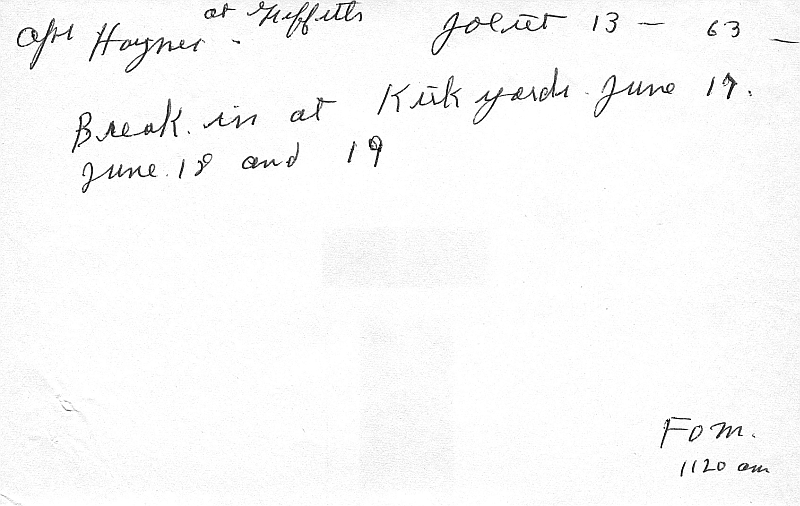 at Griffith
Opr Haynes - Joliet 13 - 63 -
Break. in at Kirk yards. June 17.
June. 18 and 19
Fom.
1120 am